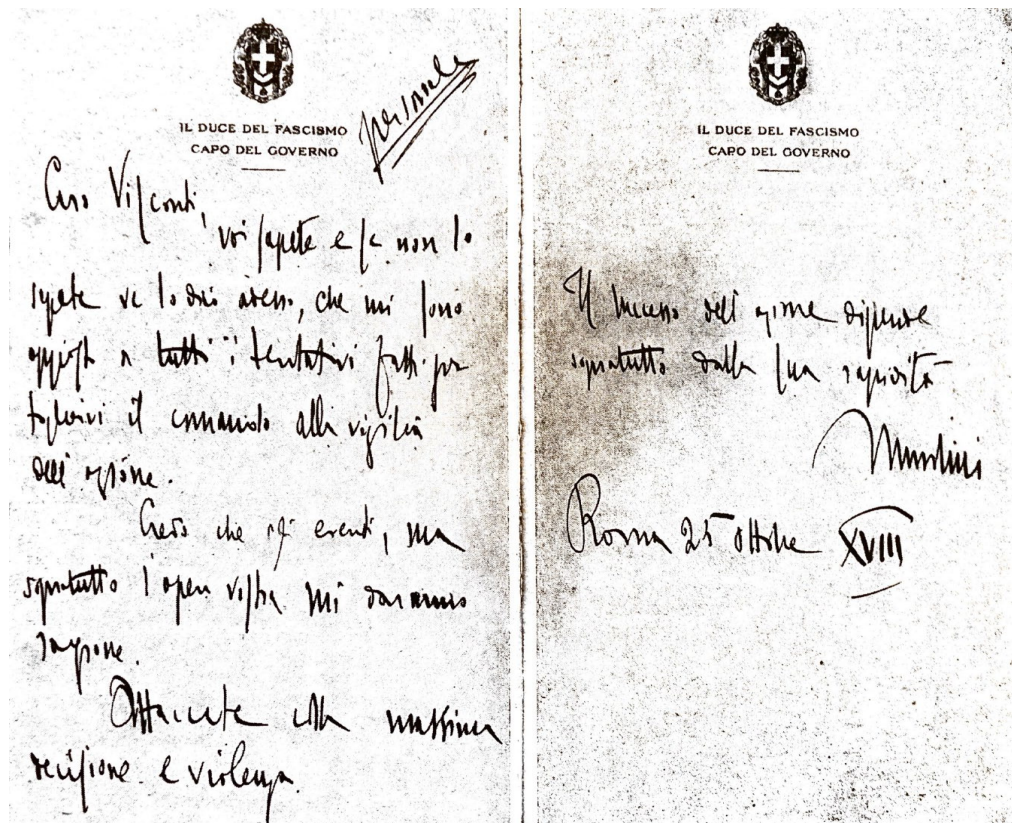 IL DUCE DEL FASCISMO
CAPO DEL GOVERNO
personale
Caro Visconti,
voi sapete e se non lo
sapete ve lo dico adesso, che mi sono
opposto a tutti i tentativi fatti per
togliervi il comando alla vigilia
dell'azione.
Credo che gli eventi, ma
sopratutto l'opera vostra mi daranno
ragione.
Attaccate colla massima
decisione e violenza.
IL DUCE DEL FASCISMO
CAPO DEL GOVERNO
Il successo dell'azione dipende
sopratutto dalla sua rapidità
Mussolini
Roma 25 ottobre XVIII